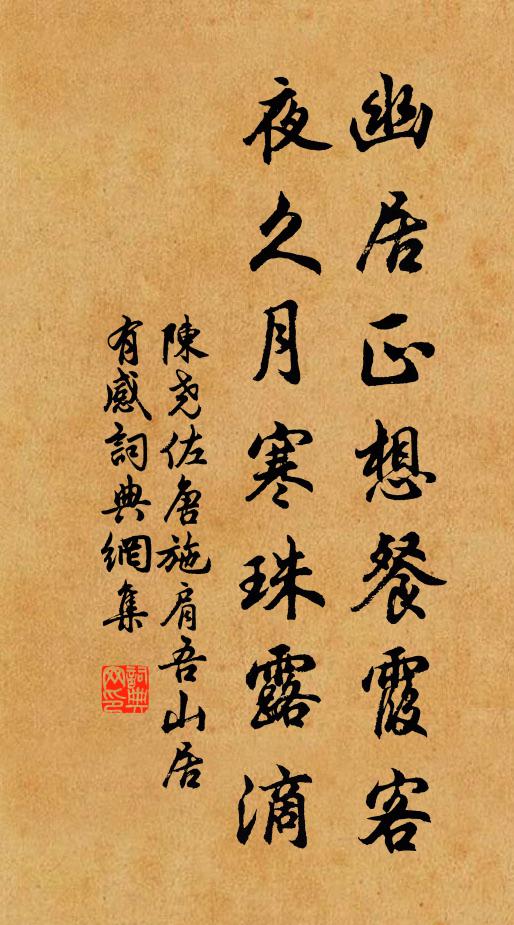 幽居正想餐霞客
夜久月寒珠露滴
陳堯佐唐施肩吾山居
有感詞典網集
詞典网印